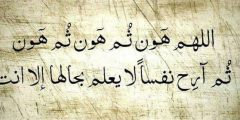 اللهم هَون ثُم هَون ثُم هَون
ثُم آرِح نفساً لا يعلم بحالها إلا انت